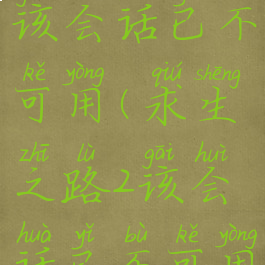 该会话已不
kě yòng qiú shēng
可用(求生
zhī lù gāi huì
之路2该会
huà yǐ bù kě yòng
话已不可用